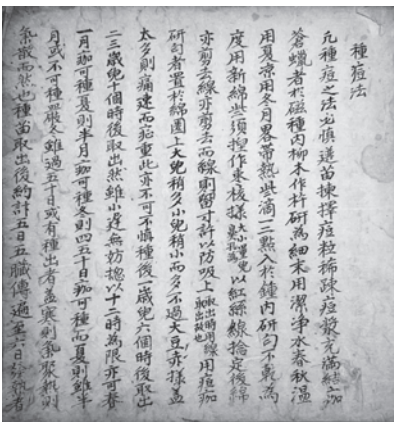 種痘法
凡種痘之法必慎選苗揀擇痘粒稀疎痘漿充滿結痂
蒼蠟者於磁種內柳木作杵研為細末用潔淨水春秋溫
用夏凉用冬月畧帶熱些滴二點入於鍾內研勻不乾為
度用新綿些須捏作棗核㨾大小量兒鼻孔為以紅絲線捨定後綿
亦剪去線亦剪去而線則留寸許以防吸上取出時用線取出故也用痘痂
研勻者置於綿圑上大兒稍多小兒稍小而多不過大豆亦㨾蓋
太多則痛速而痘重此亦不可不慎種後一歲兒六個時後取出
二三歲兒十個時後取出然雖小遅無妨揔以十二時為限亦可春
一月痂可種夏則半月痂可種冬則四五十日痂可種而夏則雖半
月或不可種嚴冬雖過五十日或有種出者盖寒則氣聚熱則
氣散而然也種苗取出後約計五日五臟傳遍至六日發熱者